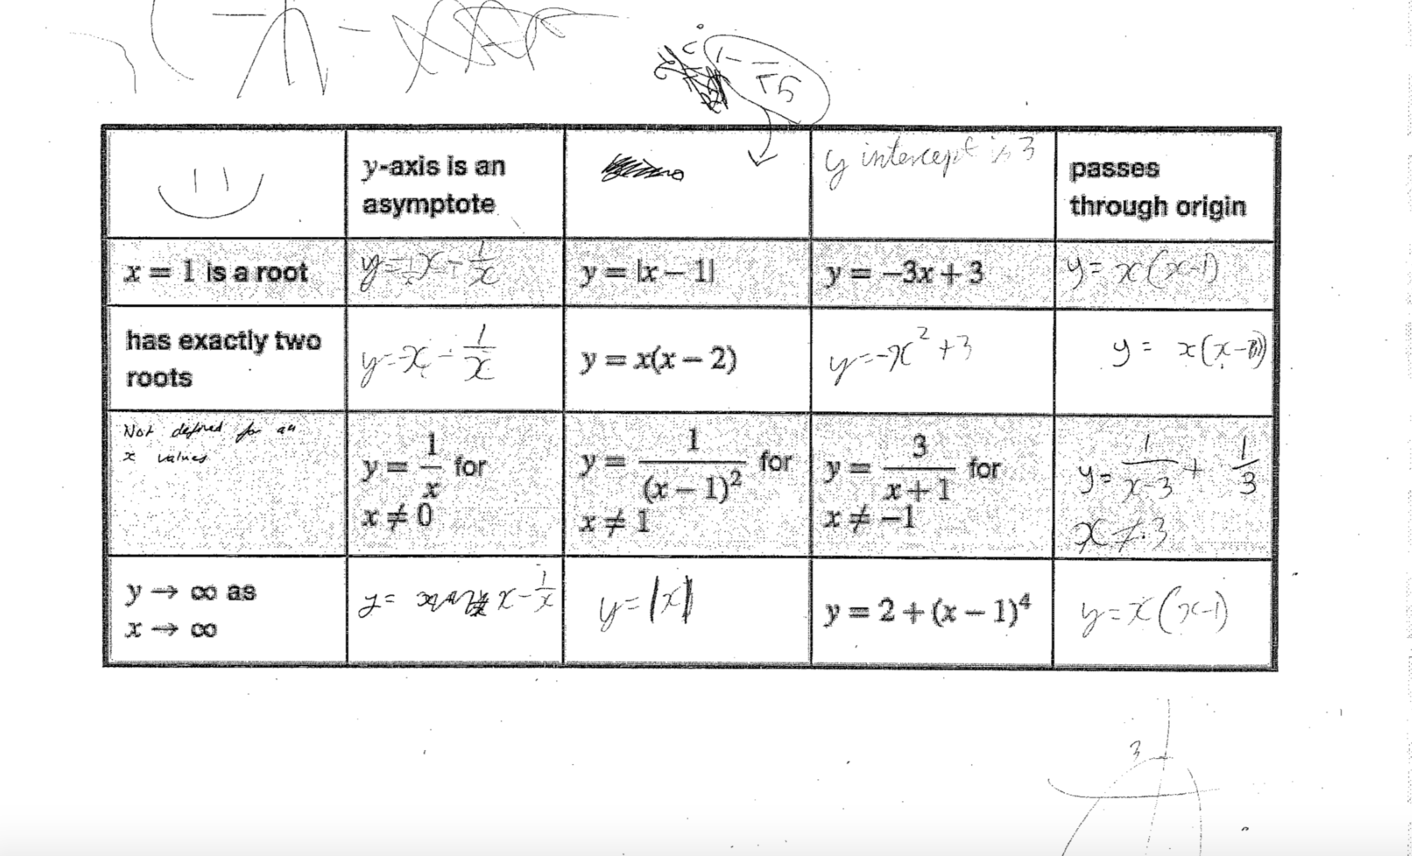 y-axis is an
asymptote
y intercept is 3
passes
through origin
x = 1 is a root
y = |x − 1|
y = −3x + 3
y = x(x-1)
has exactly two
roots
y = x - 1/x
y = x(x − 2)
y = -x² + 3
y = x(x-3)
Not defined for all
x values
y = 1/x for
x ≠ 0
y = 1/(x − 1)² for
x ≠ 1
y = 3/(x + 1) for
x ≠ −1
y = 1/(x-3) + 1/3
x ≠ 3
y → ∞ as
x → ∞
y = x - 1/x
y = |x|
y = 2 + (x − 1)⁴
y = x(x-1)
3